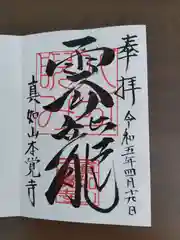 奉拝
令和五年四月十六日
雲龍
真如山本覚寺